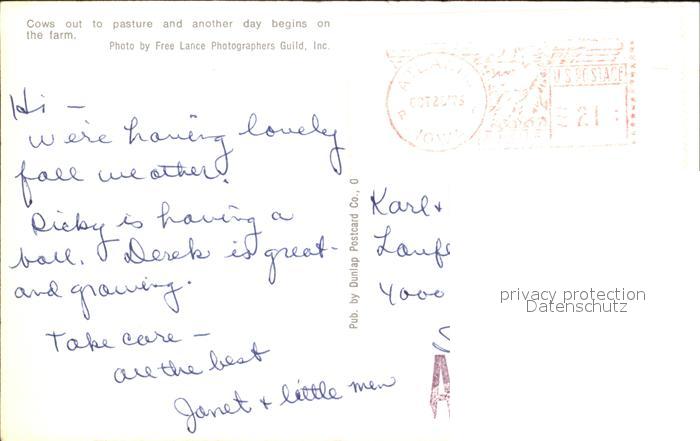 Cows out to pasture and another day begins on
the farm.
Photo by Free Lance Photographers Guild, Inc.
Hi –
We're having lovely
fall weather.
Ricky is having a
ball. Derek is great-
and growing.
Take care –
all the best
Janet + little men
Pub. by Dunlap Postcard Co., O
ATLANTIC
OCT 20 '75
IOWA
U.S. POSTAGE
21
Karl +
Laufe
4000
privacy protection
Datenschutz